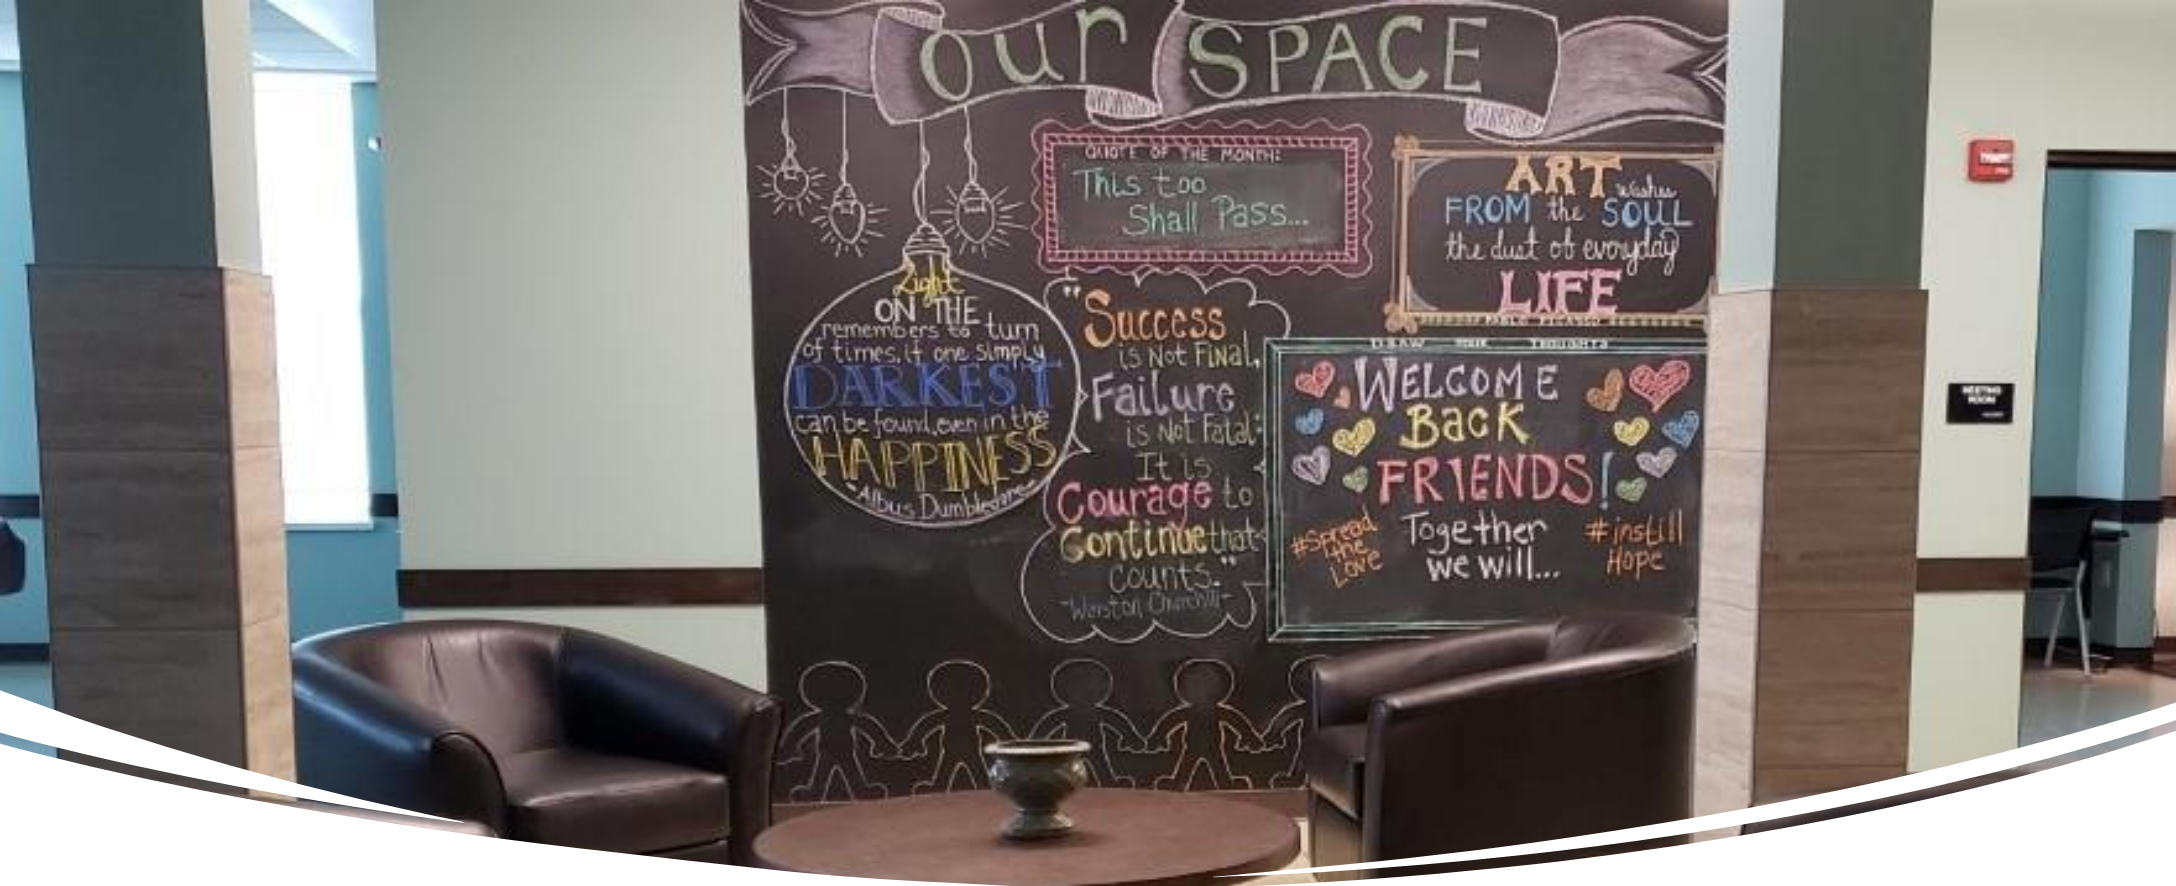 our SPACE
QUOTE OF THE MONTH:
This too
Shall Pass...
ART washes
FROM the SOUL
the dust of everyday
LIFE
PABLO PICASSO
Light
ON THE
remembers to turn
of times, if one simply
DARKEST
can be found, even in the
HAPPINESS
- Albus Dumbledore -
"Success
is Not Final,
Failure
is Not Fatal:
It is
Courage to
Continue that
Counts."
-Winston Churchill-
DRAW YOUR THOUGHTS
WELCOME
BACK
FRIENDS!
Together
we will...
#Spread
the
Love
#instill
Hope
MEETING
ROOM